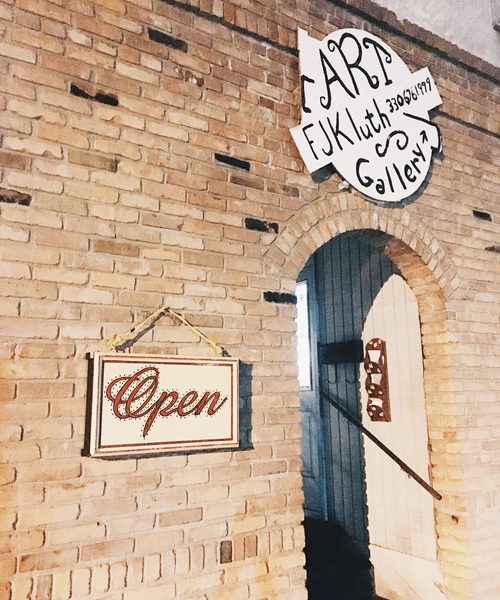 ART
FJKluth 3306761999
Gallery
Open